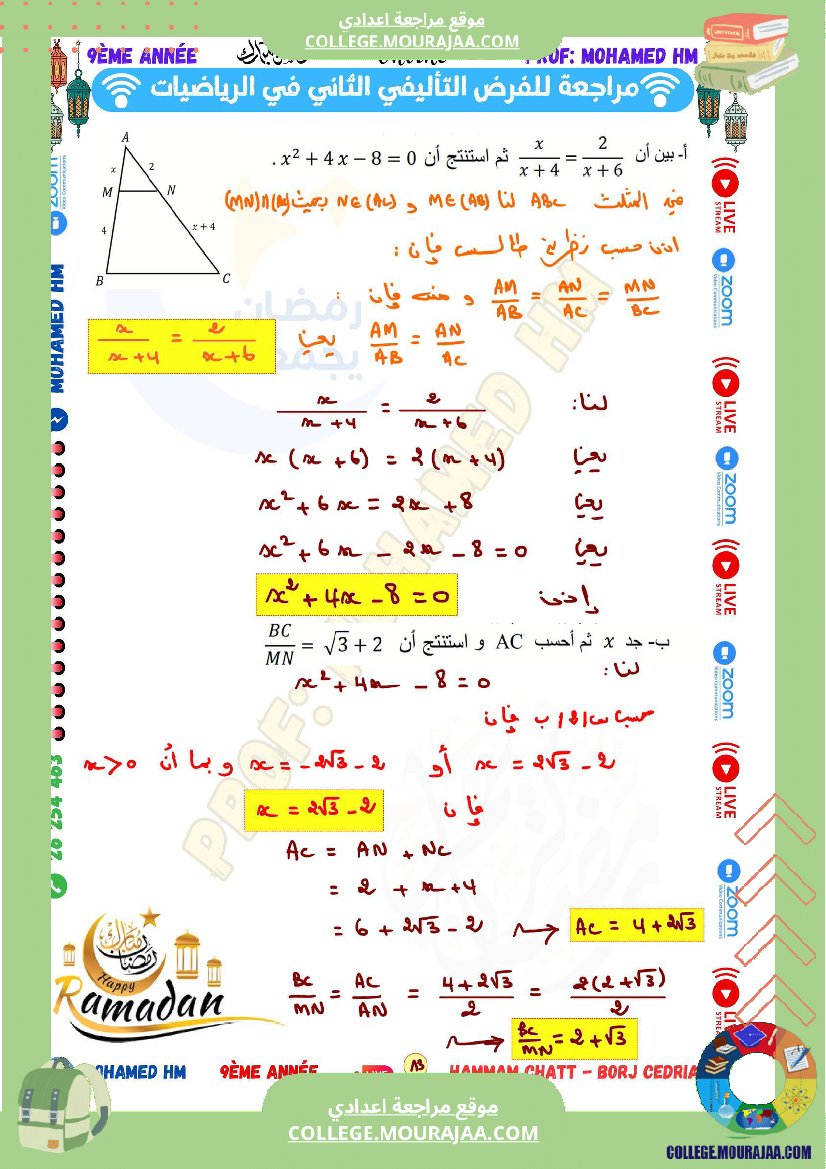 موقع مراجعة اعدادي
COLLEGE.MOURAJAA.COM
9ÈME ANNÉE
PROF: MOHAMED HM
مراجعة للفرض التأليفي الثاني في الرياضيات
أ- بين أن x/(x+4) = 2/(x+6) ثم استنتج أن x² + 4x − 8 = 0 .
A
x
2
M
N
4
x + 4
B
C
في المثلث ABC لنا M∈(AB) و N∈(AC) بحيث (MN)//(BC)
اذن حسب نظرية طالس فإن :
AM/AB = AN/AC = MN/BC و منه فإن :
AM/AB = AN/AC يعني x/(x+4) = 2/(x+6)
لنا: x/(x+4) = 2/(x+6)
يعني x(x+6) = 2(x+4)
يعني x²+6x = 2x+8
يعني x²+6x − 2x − 8 = 0
إذن x²+4x − 8 = 0
ب- جد x ثم أحسب AC و استنتج أن BC/MN = √3 + 2
لنا: x²+4x − 8 = 0
فإن
x = 2√3 − 2 أو x = −2√3 − 2 و بما أن x > 0
فإن x = 2√3 − 2
AC = AN + NC
= 2 + x + 4
= 6 + 2√3 − 2
AC = 4 + 2√3
BC/MN = AC/AN = (4+2√3)/2 = 2(2+√3)/2
BC/MN = 2 + √3
LIVE
STREAM
zoom
Video Communications
LIVE
STREAM
zoom
Video Communications
LIVE
STREAM
zoom
Video Communications
LIVE
STREAM
zoom
Video Communications
LIVE
STREAM
zoom
Video Communications
MOHAMED HM
26 254 483
PROF: MOHAMED HM
رمضان
يجمعنا
رمضان مبارك
Happy
Ramadan
MOHAMED HM
9ÈME ANNÉE
13
HAMMAM CHATT - BORJ CEDRIA
موقع مراجعة اعدادي
COLLEGE.MOURAJAA.COM
COLLEGE.MOURAJAA.COM